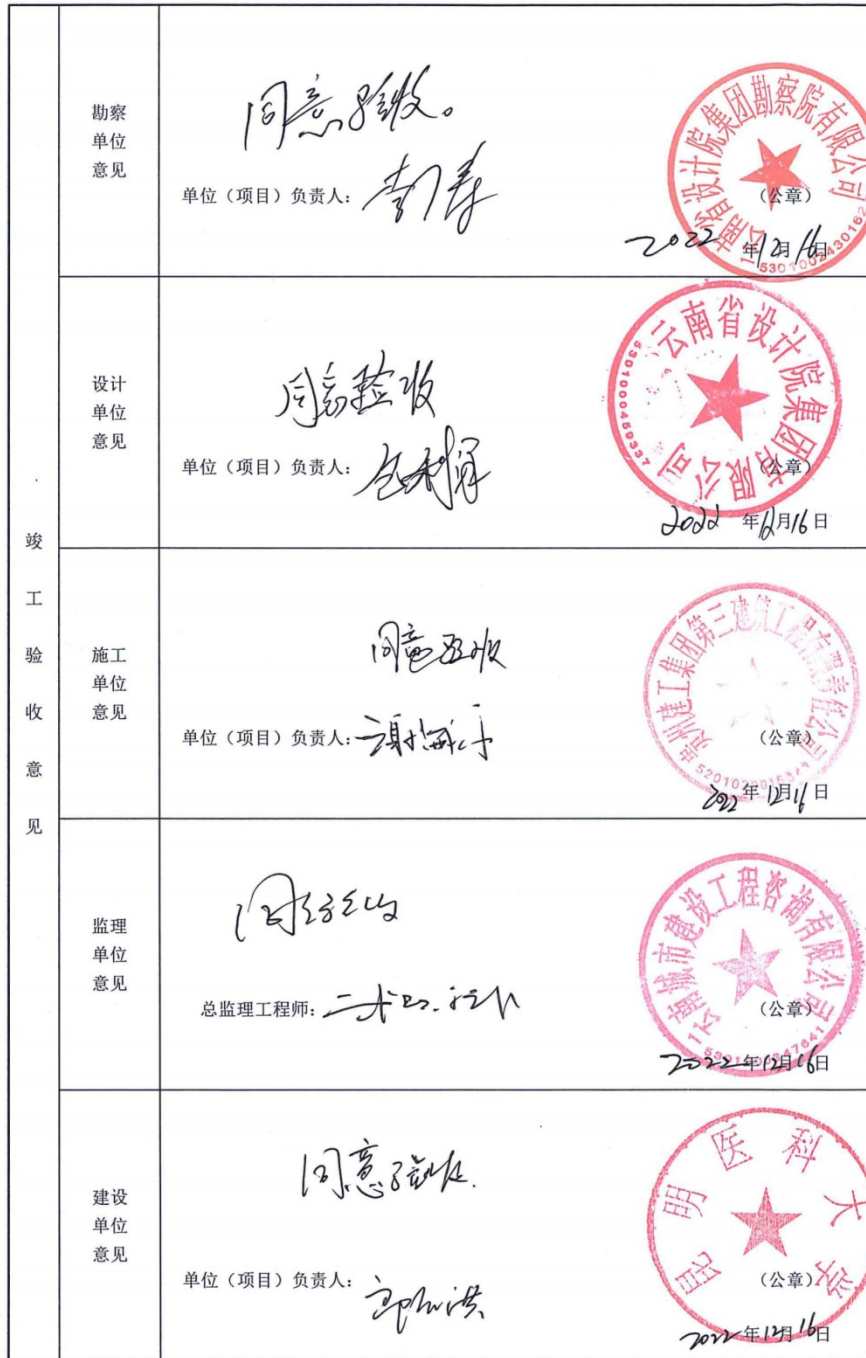 竣工验收意见
勘察
单位
意见
同意验收。
单位（项目）负责人：
云南省设计院集团勘察院有限公司
（公章）
2022年12月16日
设计
单位
意见
同意验收
单位（项目）负责人：
云南省设计院集团有限公司
（公章）
2022年12月16日
施工
单位
意见
同意验收
单位（项目）负责人：
贵州建工集团第三建筑工程有限责任公司
（公章）
2022年12月16日
监理
单位
意见
同意验收
总监理工程师：
云南城市建设工程咨询有限公司
（公章）
2022年12月16日
建设
单位
意见
同意验收.
单位（项目）负责人：
昆明医科大学
（公章）
2022年12月16日